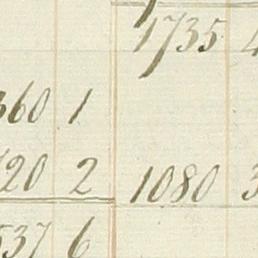 1735 4
360 1
720 2 1080 3
537 6